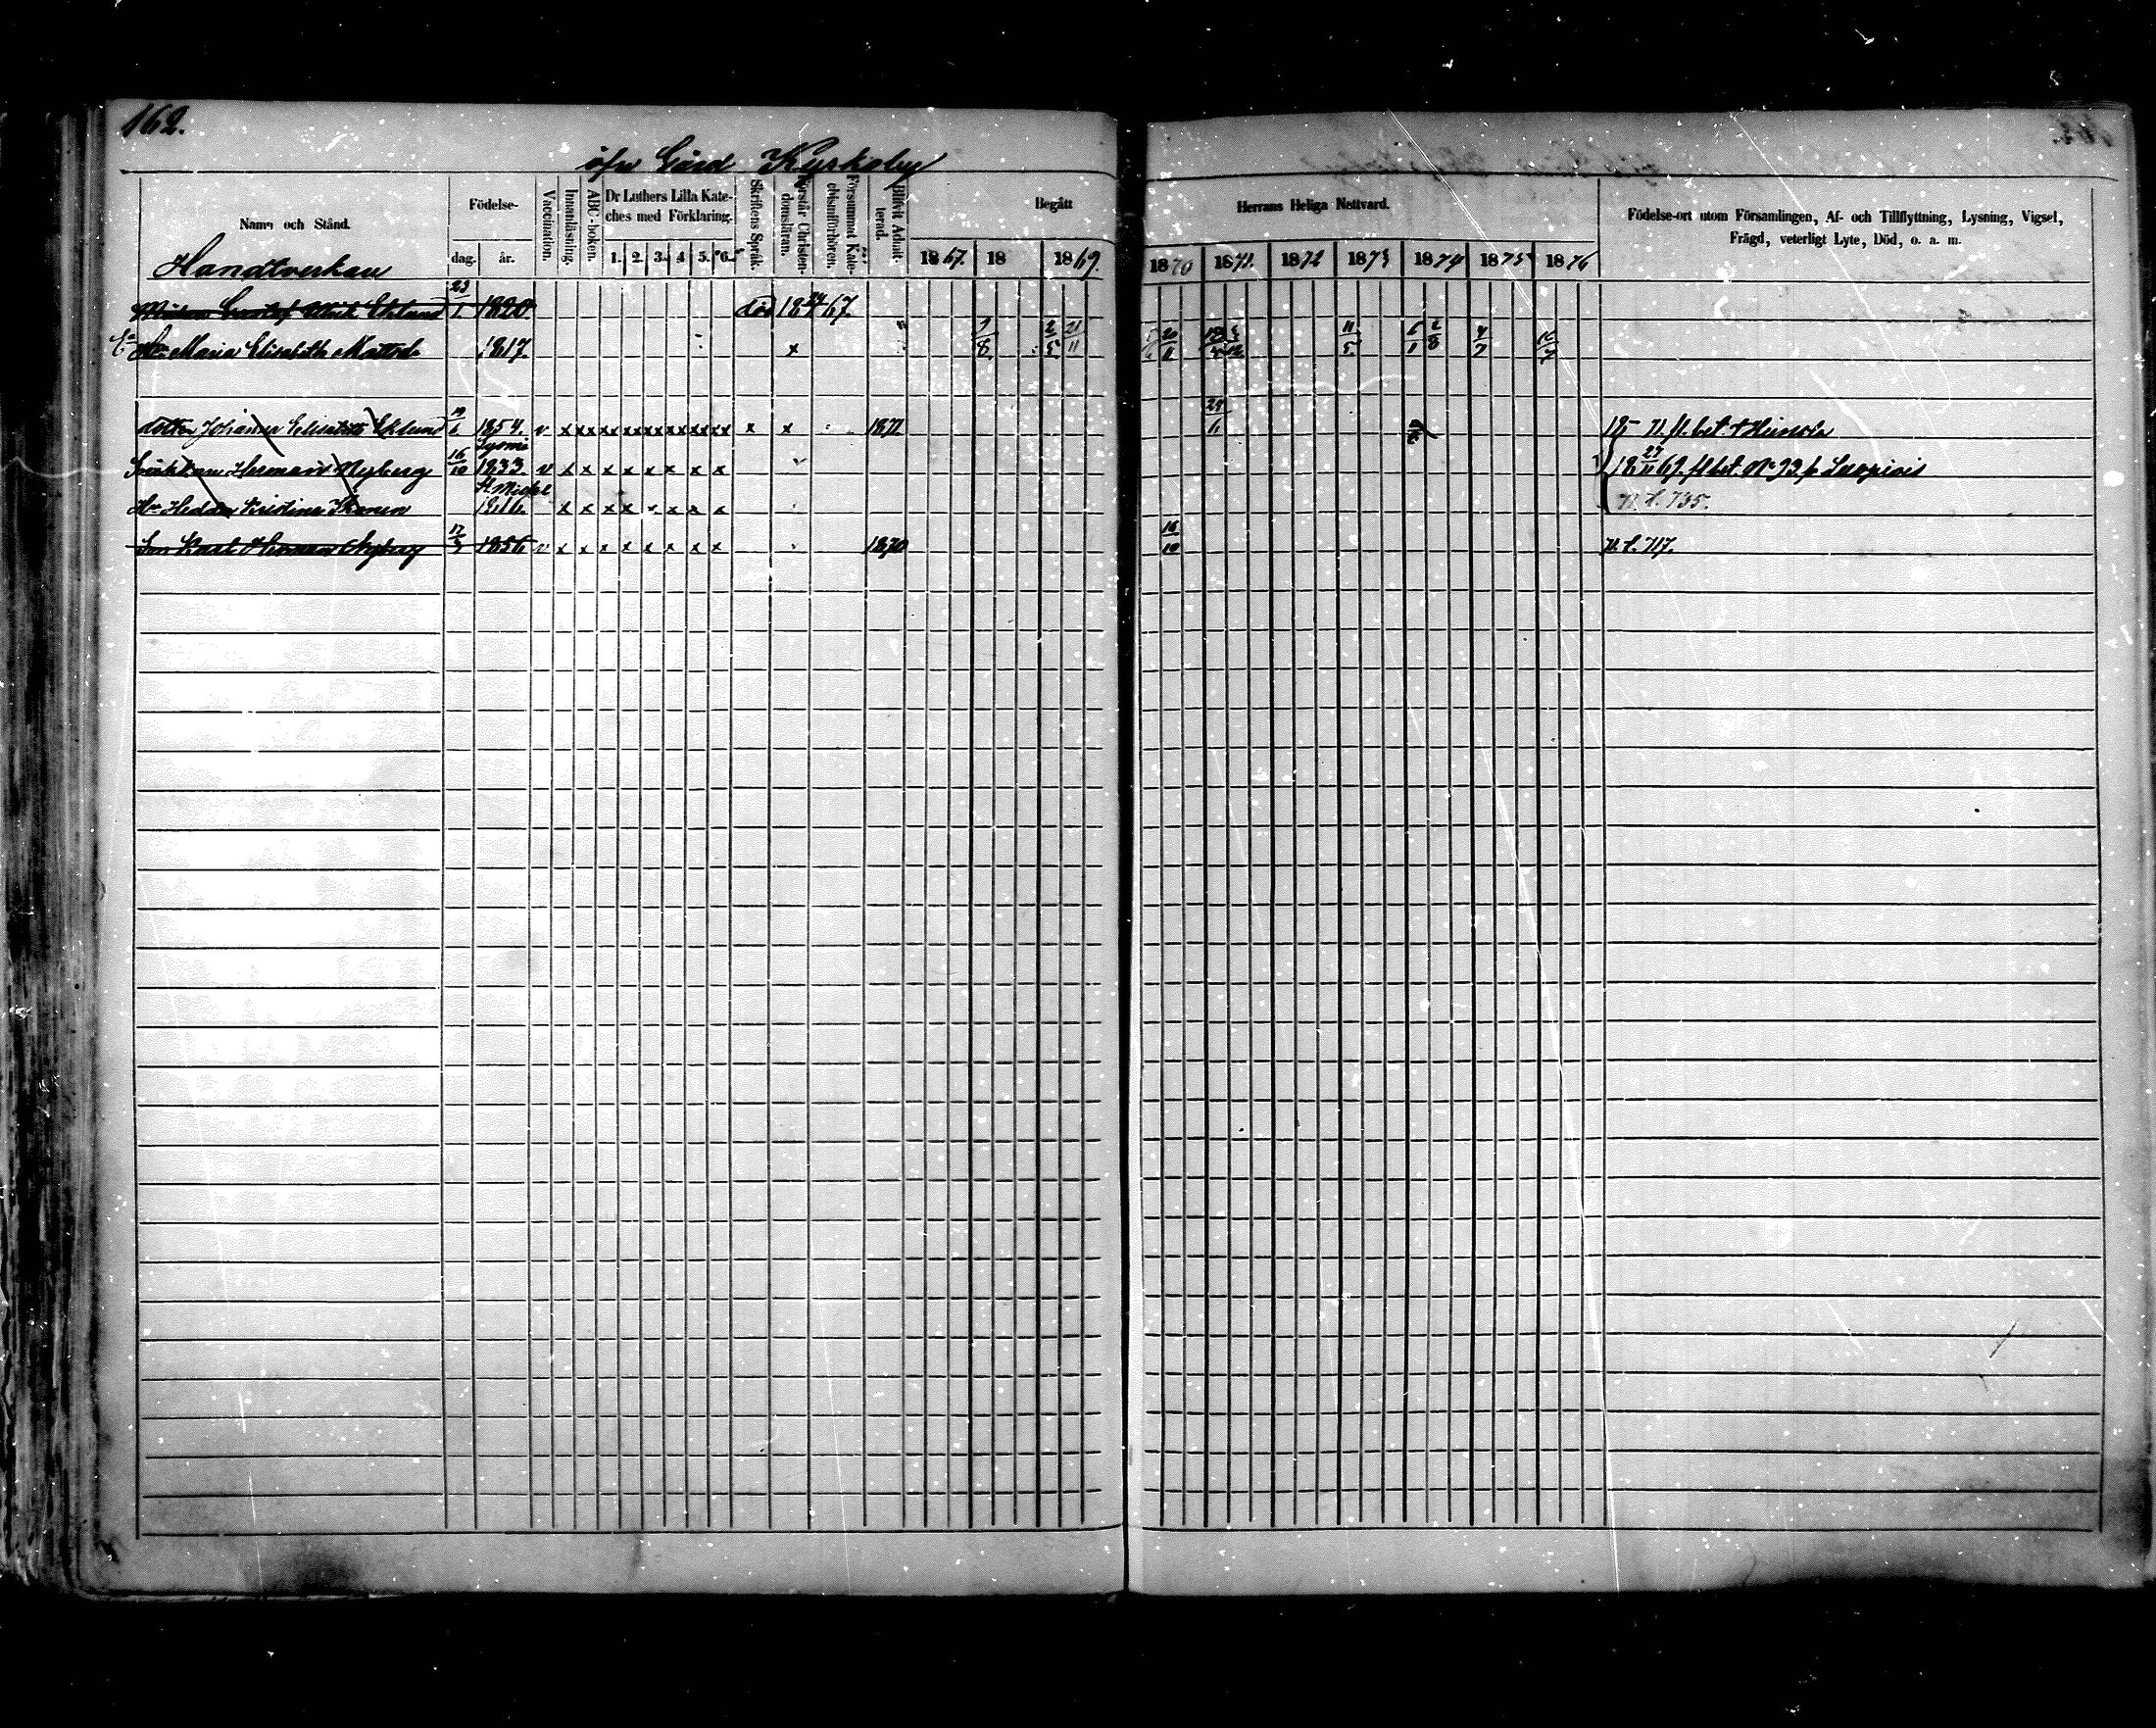 162.
öfn Gård Kyrkoby
Namn och Stånd.
Födelse-
dag. år.
Vaccination.
Innanläsning.
ABC-boken.
Dr Luthers Lilla Kate-
ches med Förklaring.
1. 2. 3. 4 5. 6.
Skriftens Språk.
Förstår Christen-
domsläran.
Försummat Kate-
chismiförhören.
Blifvit Admit-
terad.
Begått
1867. 18 1869.
Herrans Heliga Nattvard.
1870 1871. 1872 1873 1874 1875 1876
Födelse-ort utom Församlingen, Af- och Tillflyttning, Lysning, Vigsel,
Frägd, veterligt Lyte, Död, o. a. m.
Handtverkare
Eklund 23/1 1820 död 18 67.
Ea Hu Maria Elisabeth Mattsd. 1817. x 2/5 21/11 20/11 11/5 2/8 4/7
dottr Johanna Elisabeth Eklund 19/6 1854. v x x x x 1871 71 fl. bet. t Heinola
Herman Nyberg 16/10 1833 v x x x x x x x x 18 27/11 69. fl bet. No 93 fr
St Michel
Hu Hedda Kristina Ikonen 1816. x x x x v x x x N. L. 735.
Son Karl Herman Nyberg 17/3 1856 v x x x x x x x x 1870 16/10 N. L. 717.